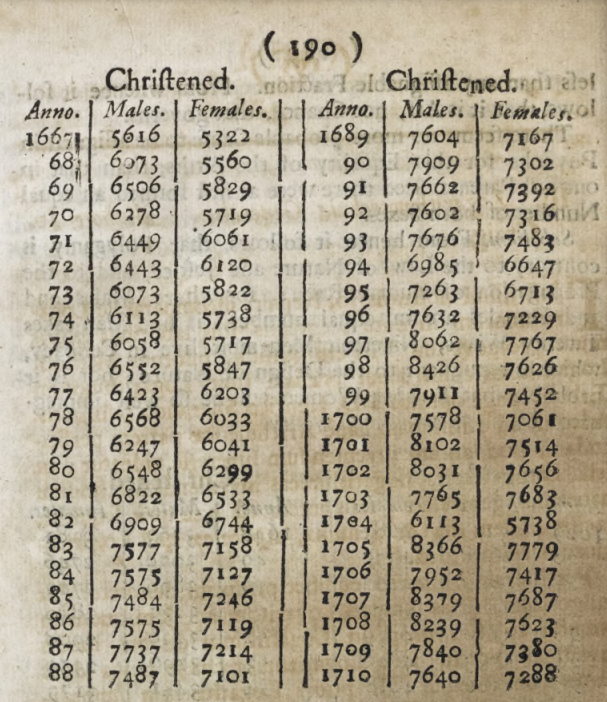 ( 190 )
Chriſtened. Chriſtened.
Anno. Males. Females. Anno. Males. Females.
1667 5616 5322 1689 7604 7167
68 6073 5560 90 7909 7302
69 6506 5829 91 7662 7392
70 6278 5719 92 7602 7316
71 6449 6061 93 7676 7483
72 6443 6120 94 6985 6647
73 6073 5822 95 7263 6713
74 6113 5738 96 7632 7229
75 6058 5717 97 8062 7767
76 6552 5847 98 8426 7626
77 6423 6203 99 7911 7452
78 6568 6033 1700 7578 7061
79 6247 6041 1701 8102 7514
80 6548 6299 1702 8031 7656
81 6822 6533 1703 7765 7683
82 6909 6744 1704 6113 5738
83 7577 7158 1705 8366 7779
84 7575 7127 1706 7952 7417
85 7484 7246 1707 8379 7687
86 7575 7119 1708 8239 7623
87 7737 7214 1709 7840 7380
88 7487 7101 1710 7640 7288